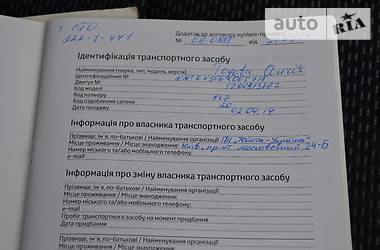 auto RIA
т. СТО
222-1-441
Додаток до договору купівлі-продажу
№ від
Ідентифікація транспортного засобу
Найменування (марка, тип, модель, версія) Toyota Auris
Ідентифікаційний №
Двигун №
Код моделі
Код кольору
Код оздоблення салона 20
Дата продажу 02.04.14
Інформація про власника транспортного засобу
Прізвище, ім'я, по-батькові / Найменування організації ПІІ "Тойота-Україна"
Місце проживання / Місце знаходження: Київ, пр-т Московський 24-Б
Номер міського та/або мобільного телефону:
e-mail
Інформація про зміну власника транспортного засобу
Прізвище, ім'я, по-батькові / Найменування організації
Місце проживання / Місце знаходження:
Номер міського та/або мобільного телефону:
e-mail
Пробіг транспортного засобу на момент придбання
Дата придбання
Прізвище, ім'я, по-батькові / Найменування організації
Місце проживання / Місце знаходження: